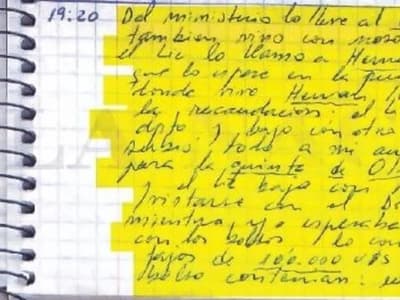 19:20 Del ministerio lo lleve al
tambien vino con noso
el Lic lo llamo a Herna
que lo espere en la pue
donde vive Hernan
la recaudacion; el L
dpto y bajo con otro
subio todo a mi au
para la quinta de Ol
y el Lic bajo con
mientras yo esperaba
con los bolsos lo co
fajos de 100.000 U$S
bolso contenian: